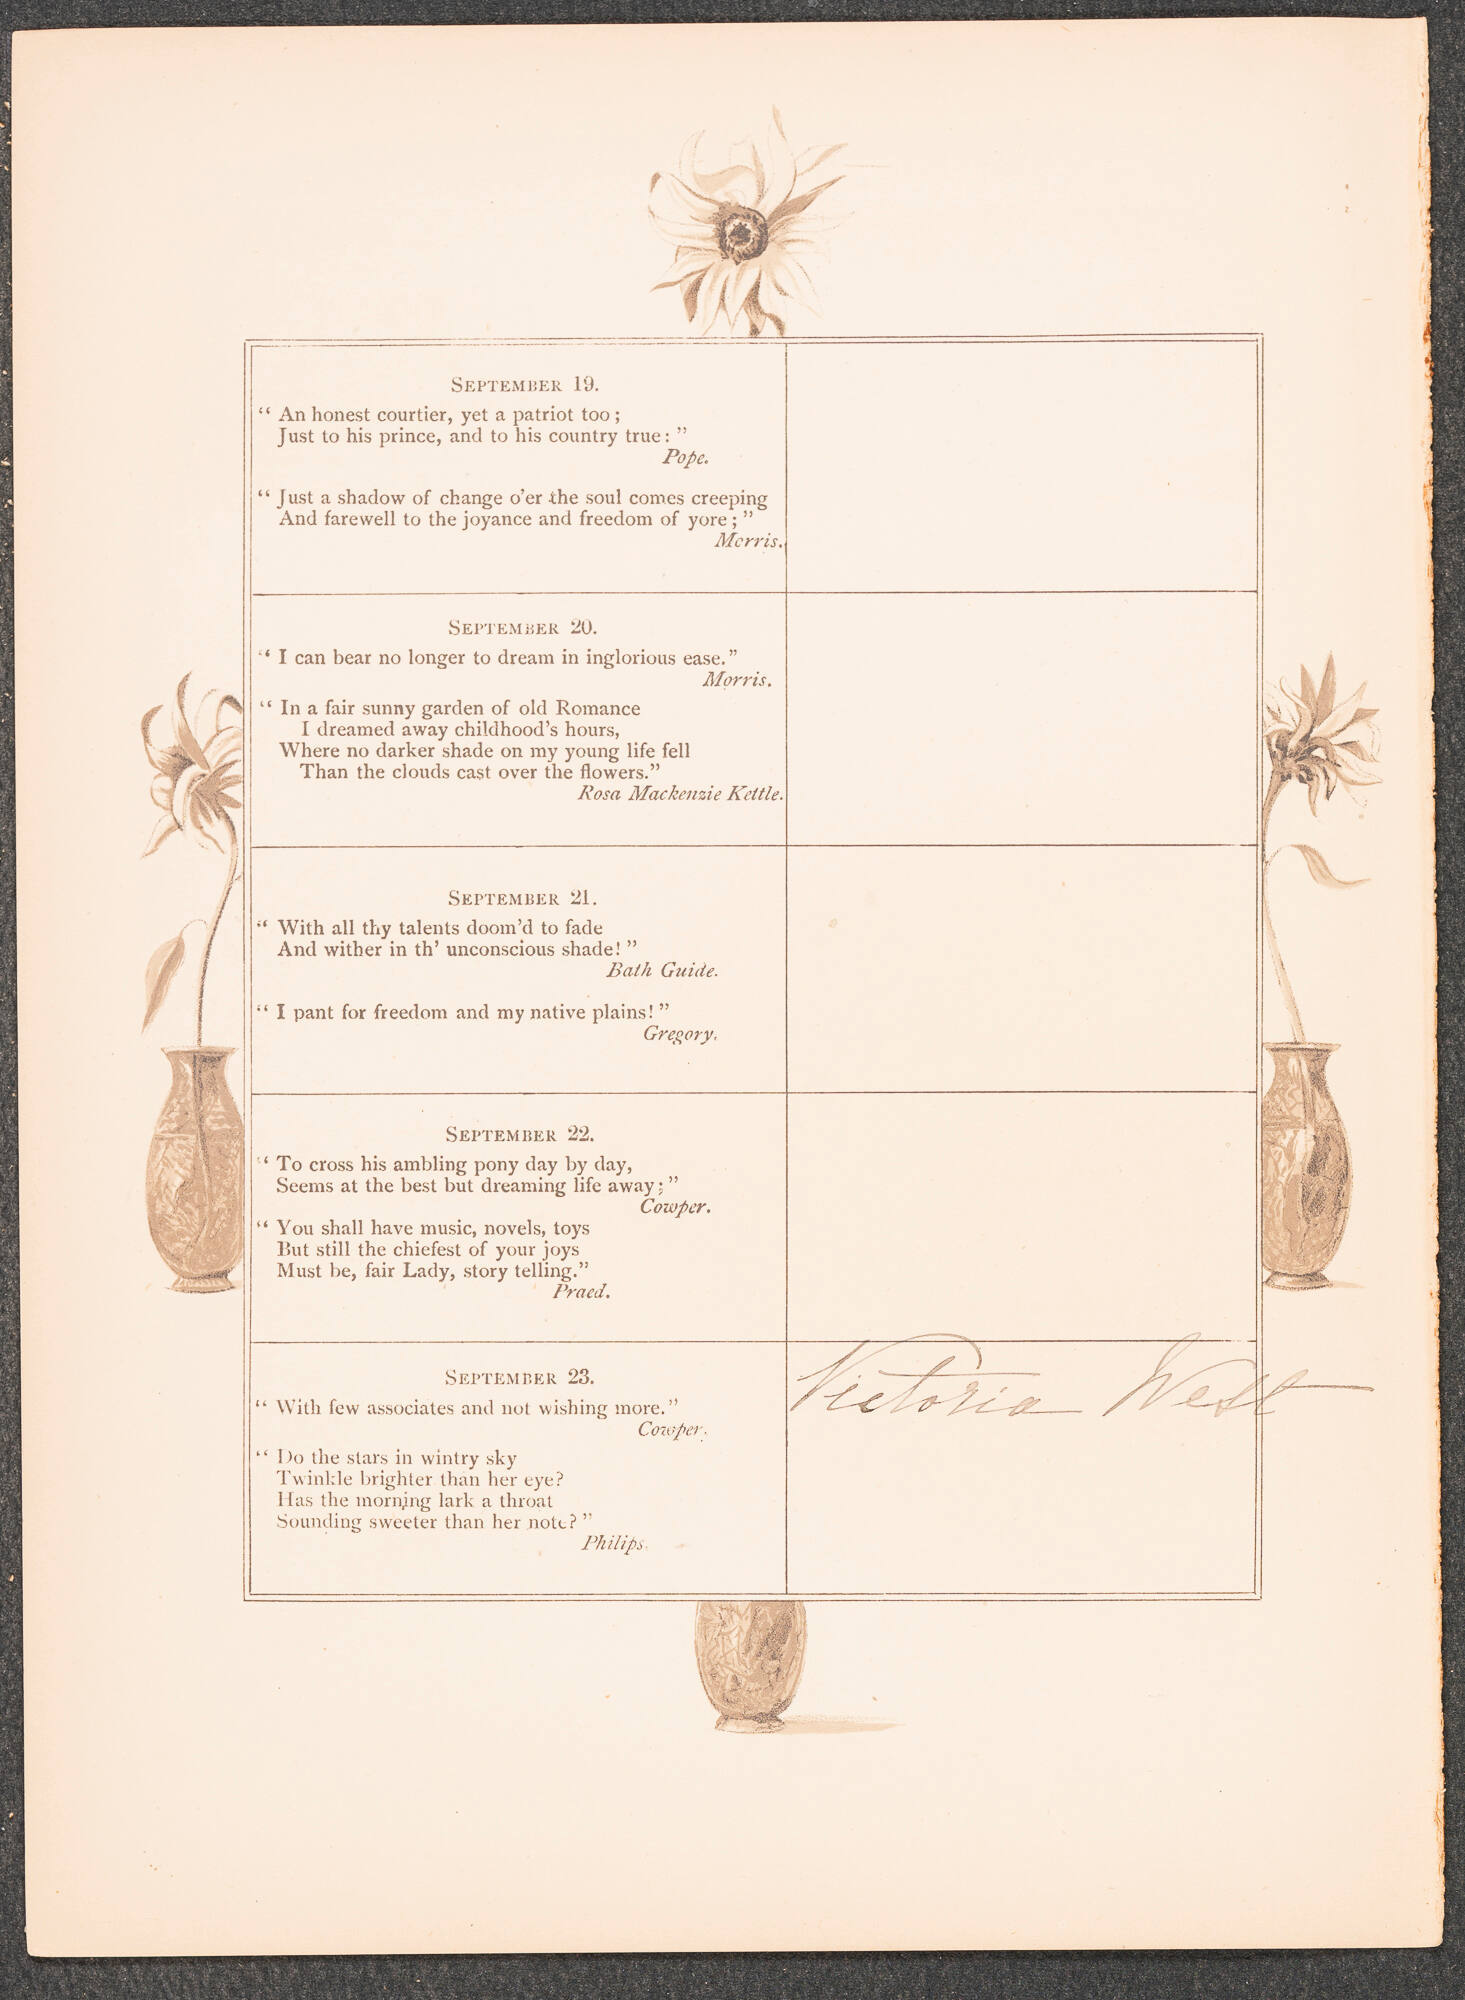 SEPTEMBER 19.
“ An honest courtier, yet a patriot too ;
Just to his prince, and to his country true : ”
Pope.
“ Just a shadow of change o’er the soul comes creeping
And farewell to the joyance and freedom of yore ; ”
Morris.
SEPTEMBER 20.
“ I can bear no longer to dream in inglorious ease.”
Morris.
“ In a fair sunny garden of old Romance
I dreamed away childhood’s hours,
Where no darker shade on my young life fell
Than the clouds cast over the flowers.”
Rosa Mackenzie Kettle.
SEPTEMBER 21.
“ With all thy talents doom’d to fade
And wither in th’ unconscious shade! ”
Bath Guide.
“ I pant for freedom and my native plains! ”
Gregory.
SEPTEMBER 22.
“ To cross his ambling pony day by day,
Seems at the best but dreaming life away ; ”
Cowper.
“ You shall have music, novels, toys
But still the chiefest of your joys
Must be, fair Lady, story telling.”
Praed.
SEPTEMBER 23.
“ With few associates and not wishing more.”
Cowper.
“ Do the stars in wintry sky
Twinkle brighter than her eye?
Has the morning lark a throat
Sounding sweeter than her note? ”
Philips.
Victoria West